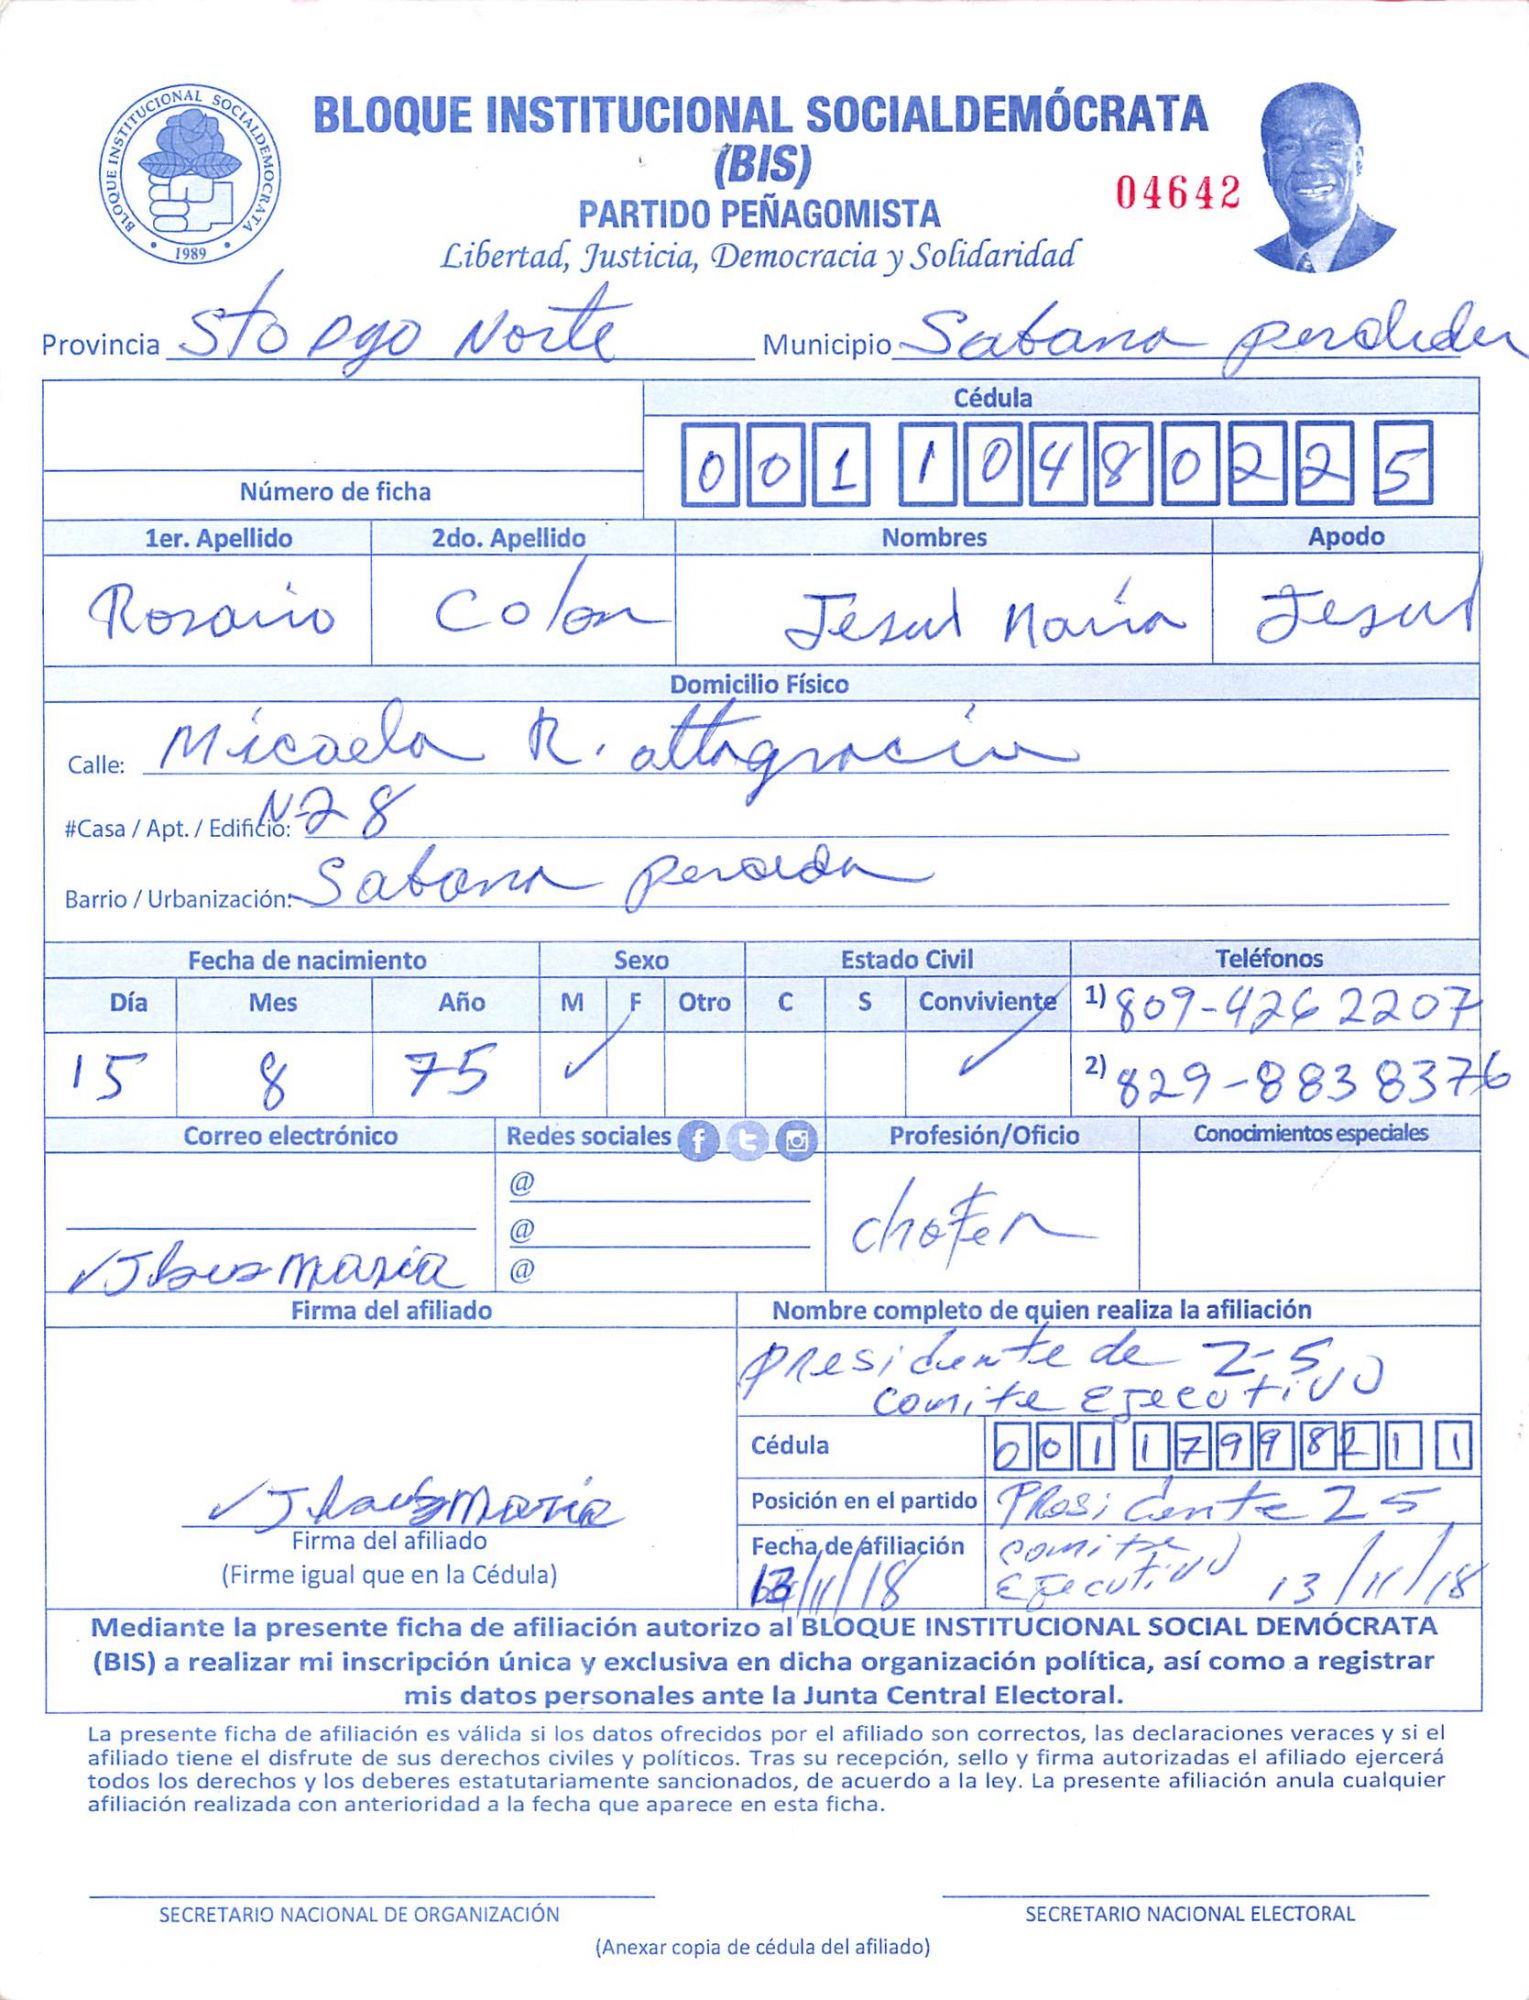 BLOQUE INSTITUCIONAL SOCIALDEMOCRATA
1989
BLOQUE INSTITUCIONAL SOCIALDEMÓCRATA
(BIS)
PARTIDO PEÑAGOMISTA
04642
Libertad, Justicia, Democracia y Solidaridad
Provincia Sto Dgo Norte Municipio Sabana perdida
Cédula
001 1048022 5
Número de ficha
1er. Apellido 2do. Apellido Nombres Apodo
Rosario Colon Jesus Maria Jesus
Domicilio Físico
Calle: Micaela R. altagracia
#Casa / Apt. / Edificio: N-28
Barrio / Urbanización: Sabana perdida
Fecha de nacimiento Sexo Estado Civil Teléfonos
Día Mes Año M F Otro C S Conviviente 1) 809-426 2207
15 8 75 ✓ ✓ 2) 829-883 8376
Correo electrónico Redes sociales Profesión/Oficio Conocimientos especiales
@
@
@
chofer
Jesus maria
Firma del afiliado Nombre completo de quien realiza la afiliación
Presidente de Z-5
comite Ejecutivo
Cédula 001 1799821 1
Jesus maria
Posición en el partido Presidente Z 5
Firma del afiliado
(Firme igual que en la Cédula)
Fecha de afiliación comite
Ejecutivo 13/11/18
13/11/18
Mediante la presente ficha de afiliación autorizo al BLOQUE INSTITUCIONAL SOCIAL DEMÓCRATA
(BIS) a realizar mi inscripción única y exclusiva en dicha organización política, así como a registrar
mis datos personales ante la Junta Central Electoral.
La presente ficha de afiliación es válida si los datos ofrecidos por el afiliado son correctos, las declaraciones veraces y si el
afiliado tiene el disfrute de sus derechos civiles y políticos. Tras su recepción, sello y firma autorizadas el afiliado ejercerá
todos los derechos y los deberes estatutariamente sancionados, de acuerdo a la ley. La presente afiliación anula cualquier
afiliación realizada con anterioridad a la fecha que aparece en esta ficha.
SECRETARIO NACIONAL DE ORGANIZACIÓN SECRETARIO NACIONAL ELECTORAL
(Anexar copia de cédula del afiliado)